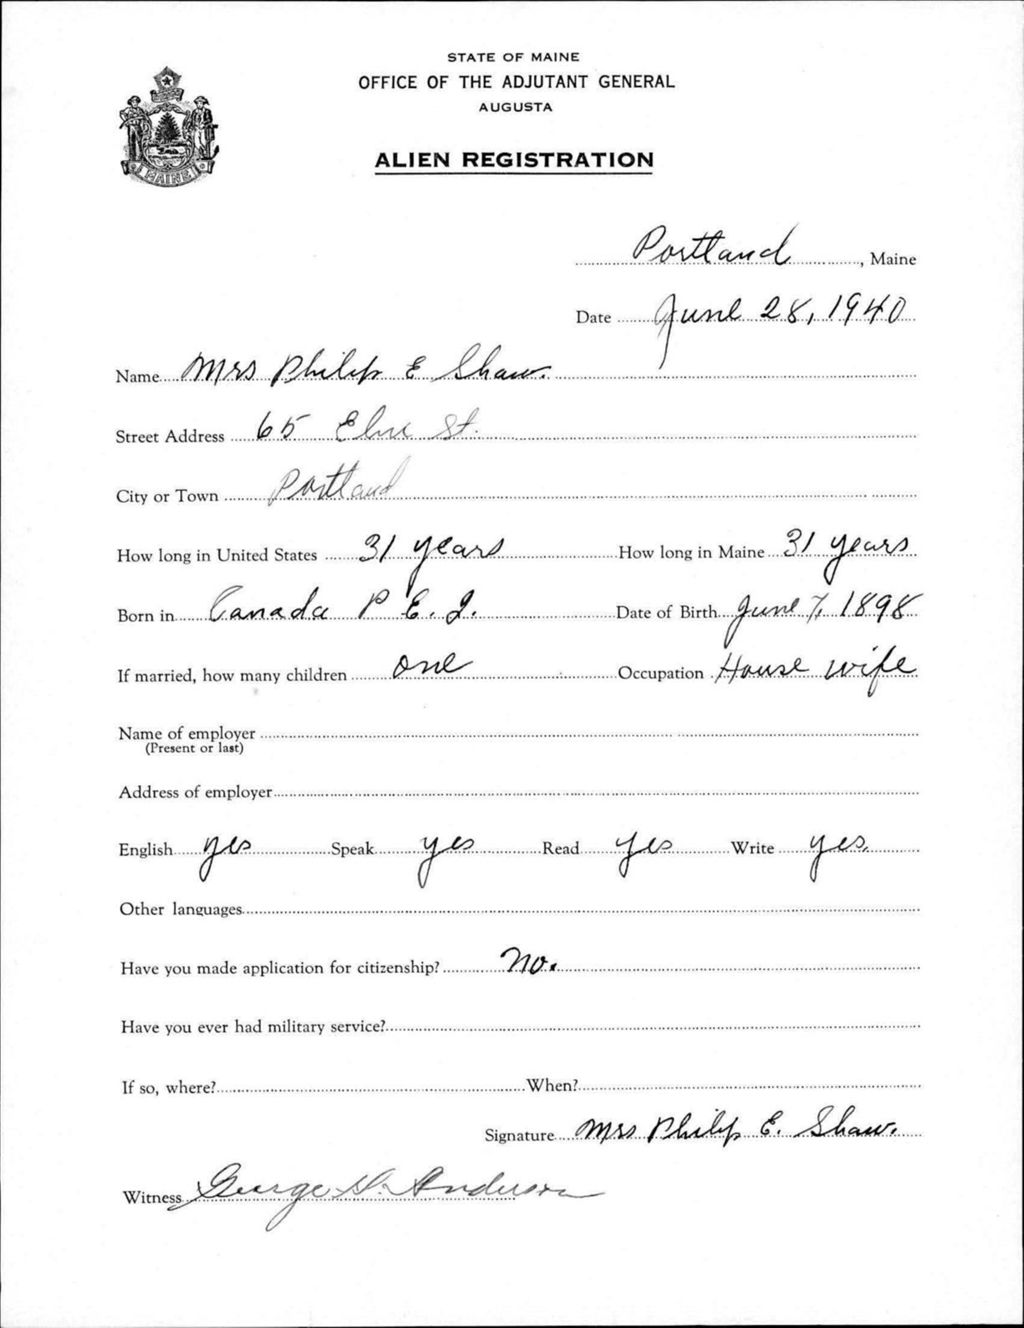 STATE OF MAINE
OFFICE OF THE ADJUTANT GENERAL
AUGUSTA
ALIEN REGISTRATION
MAINE
Portland, Maine
Date June 28, 1940
Name Mrs Philip E Shaw.
Street Address 65 Elm St.
City or Town Portland
How long in United States 31 years How long in Maine 31 years
Born in Canada P E. I. Date of Birth June 7, 1898
If married, how many children one Occupation House wife
Name of employer
(Present or last)
Address of employer
English yes Speak yes Read yes Write yes.
Other languages
Have you made application for citizenship? No.
Have you ever had military service?
If so, where? When?
Signature Mrs Philip E. Shaw.
Witness George Anderson